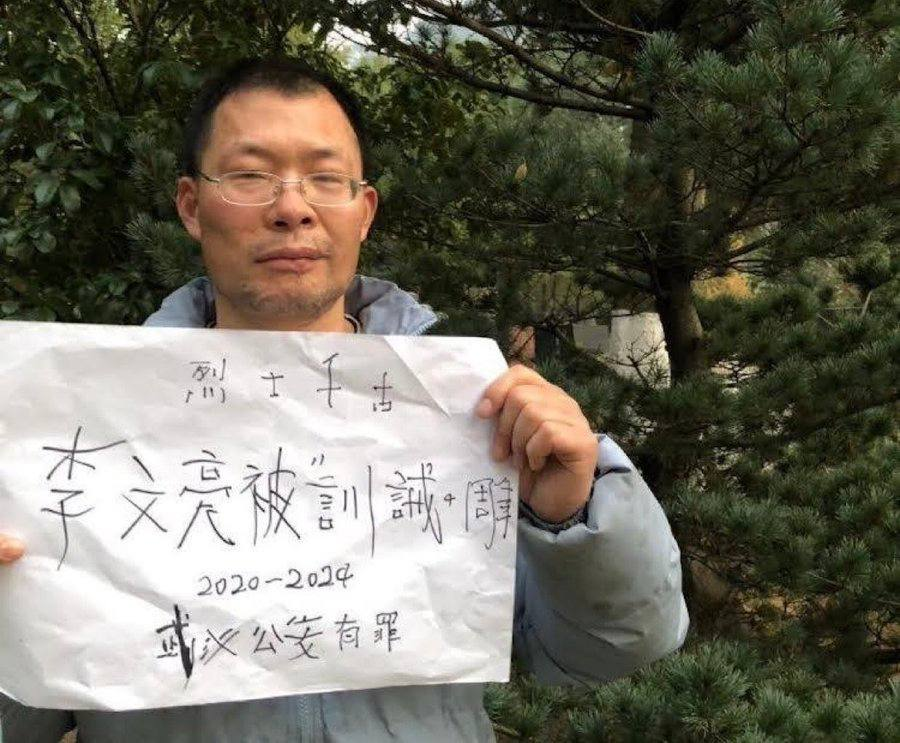 烈士千古
李文亮被“訓誡”4周年
2020-2024
武汉公安有罪